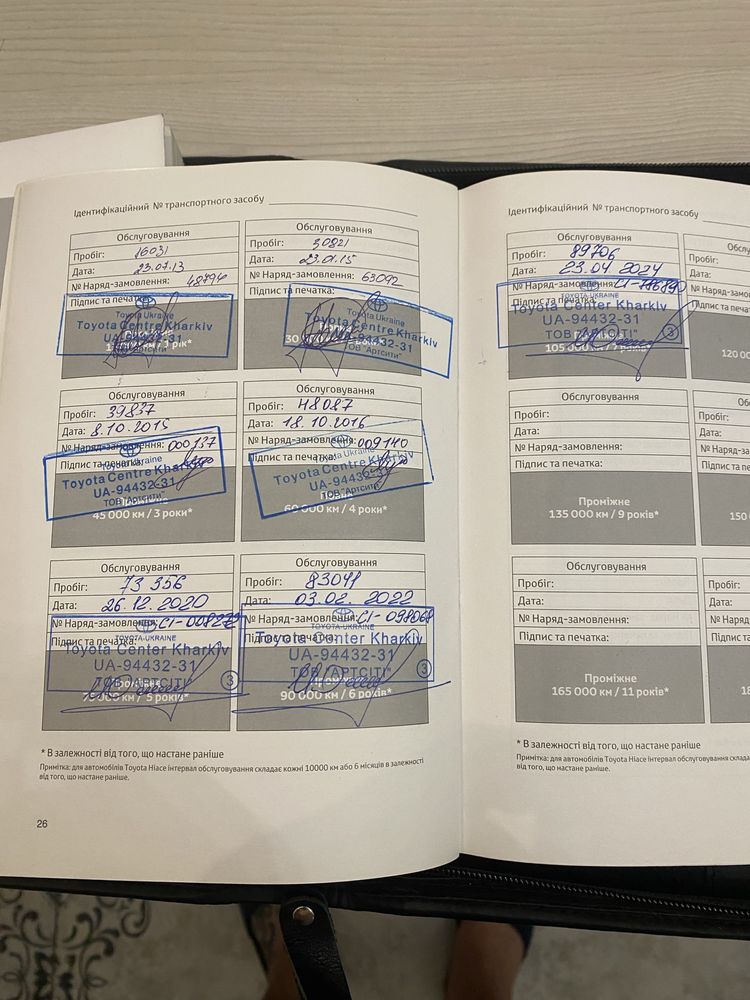 Ідентифікаційний № транспортного засобу
Обслуговування
Пробіг: 16031
Дата: 23.07.13
№ Наряд-замовлення: 48794
Підпис та печатка:
Toyota Ukraine
Toyota Centre Kharkiv
UA-94432-31
ТОВ "Артсити"
Обслуговування
Пробіг: 30821
Дата: 23.01.15
№ Наряд-замовлення: 63092
Підпис та печатка:
Toyota Ukraine
Toyota Centre Kharkiv
UA-94432-31
ТОВ "Артсити"
Обслуговування
Пробіг: 39837
Дата: 8.10.2015
№ Наряд-замовлення: 000137
Підпис та печатка:
Toyota Ukraine
Toyota Centre Kharkiv
UA-94432-31
ТОВ "Артсити"
45 000 км / 3 роки*
Обслуговування
Пробіг: 48087
Дата: 18.10.2016
№ Наряд-замовлення: 009140
Підпис та печатка:
Toyota Ukraine
Toyota Centre Kharkiv
UA-94432-31
ТОВ "Артсити"
60 000 км / 4 роки*
Обслуговування
Пробіг: 73 356
Дата: 26.12.2020
№ Наряд-замовлення:
Підпис та печатка:
TOYOTA-UKRAINE
Toyota Center Kharkiv
UA-94432-31
ТОВ "АРТСІТІ"
3
Обслуговування
Пробіг: 83041
Дата: 03.02.2022
№ Наряд-замовлення: С1-098068
Підпис та печатка:
TOYOTA-UKRAINE
Toyota Center Kharkiv
UA-94432-31
ТОВ "АРТСІТІ"
3
90 000 км / 6 років*
* В залежності від того, що настане раніше
Примітка: для автомобілів Toyota Hiace інтервал обслуговування складає кожні 10000 км або 6 місяців в залежності
від того, що настане раніше.
26
Ідентифікаційний № транспортного засобу
Обслуговування
Пробіг: 89706
Дата: 23.04 2024
№ Наряд-замовлення:
Підпис та печатка:
TOYOTA-UKRAINE
Toyota Center Kharkiv
UA-94432-31
ТОВ "АРТСІТІ"
3
105 000 км
120 00
Обслуговування
Пробіг:
Дата:
№ Наряд-замовлення:
Підпис та печатка:
Проміжне
135 000 км / 9 років*
150
Обслуговування
Пробіг:
Дата:
№ Наряд-замовлення:
Підпис та печатка:
Проміжне
165 000 км / 11 років*
* В залежності від того, що настане раніше
Примітка: для автомобілів Toyota Hiace інтервал обслуговування складає
від того, що настане раніше.